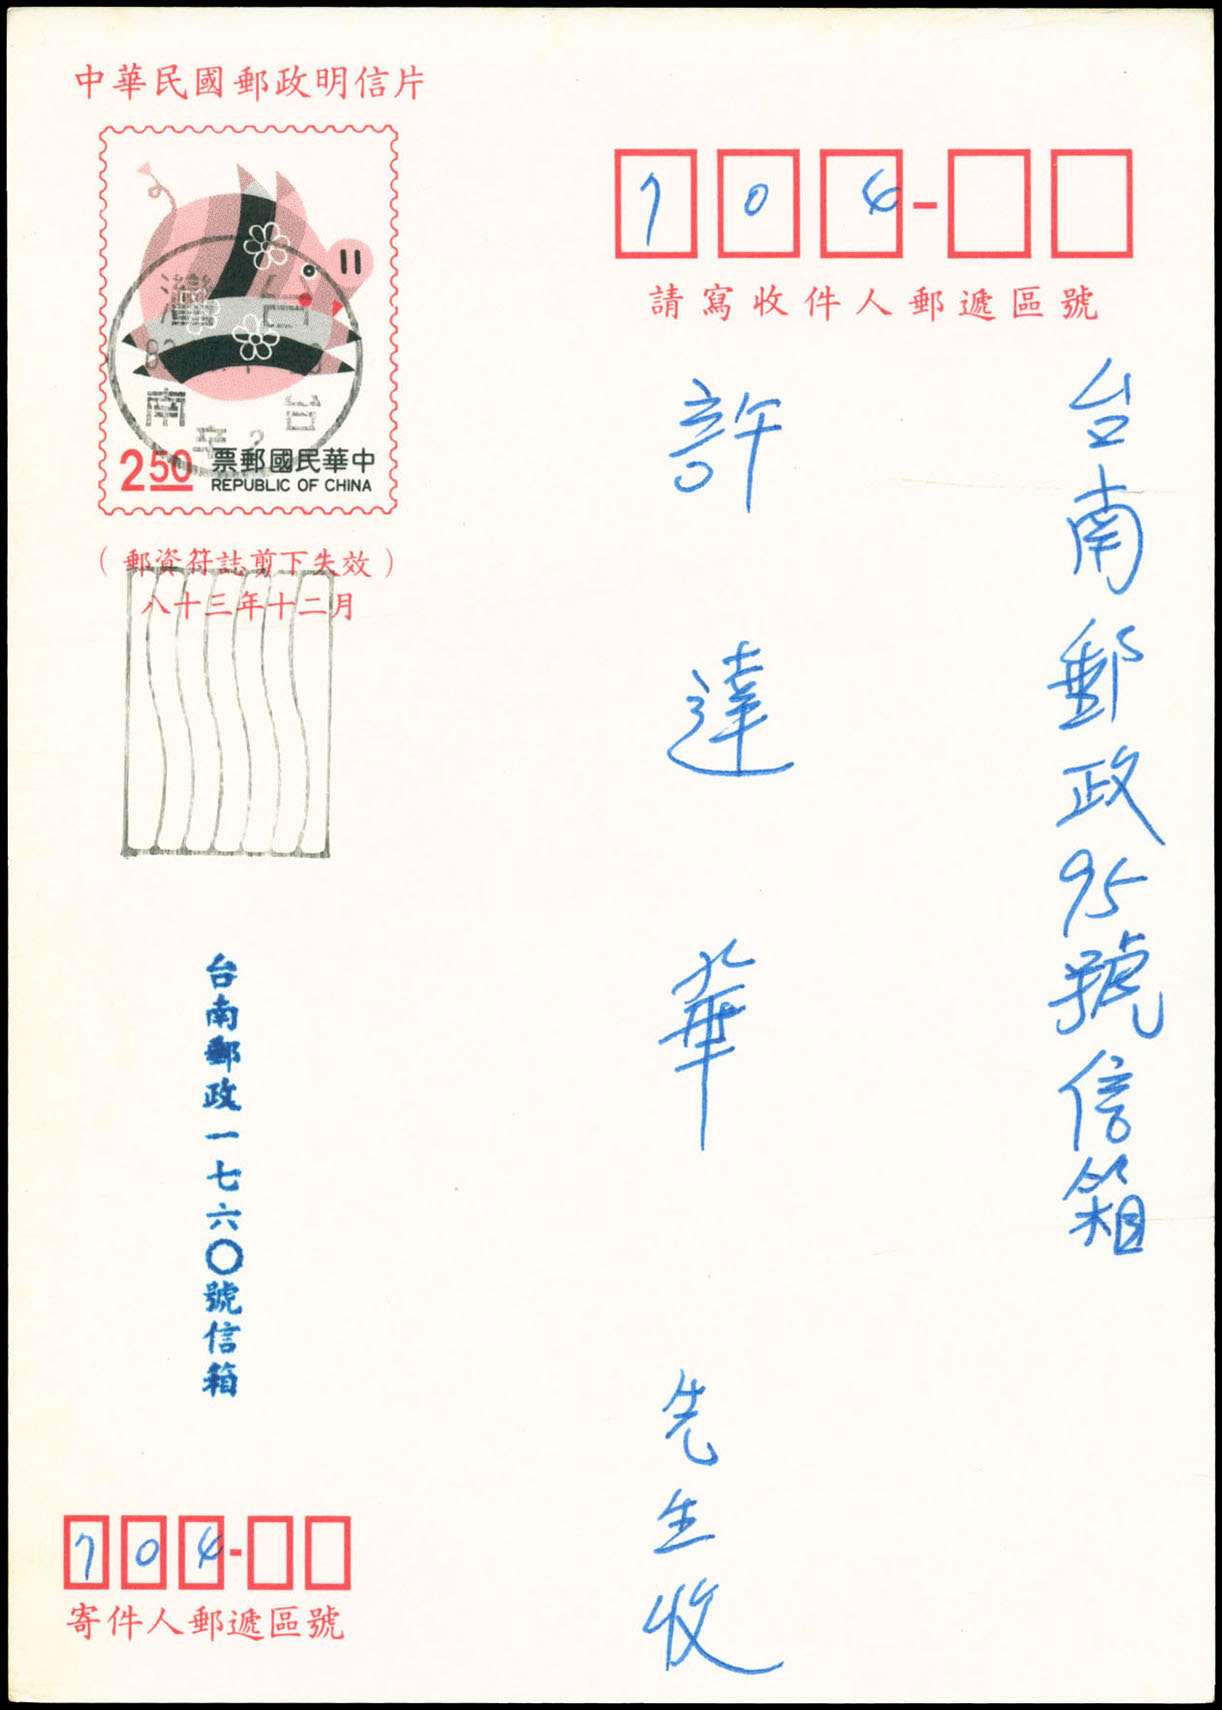 中華民國郵政明信片
2.50
票郵國民華中
REPUBLIC OF CHINA
灣
台
南
(郵資符誌剪下失效)
八十三年十二月
704-
請寫收件人郵遞區號
台南郵政95號信箱
許達華 先生收
台南郵政一七六〇號信箱
704-
寄件人郵遞區號